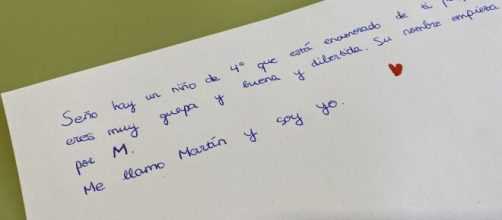 Seño hay un niño de 4º que está enamorado de ti
eres muy guapa y buena y dibertida. Su nombre empieza
por M.
Me llamo Martín y soy yo.